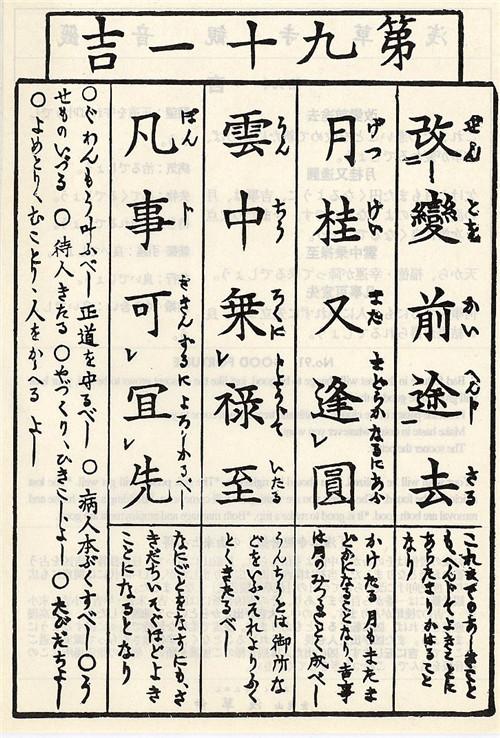 第九十一吉
改變前途去
ぜんとを かい へんじ さる
これまでのあしきこと
も、へんじてよきことに
あらたまりかはること
なり
月桂又逢圓
げつ けい また まどかなるにあふ
かけたる月もまたま
どかになることなり、吉事
は月のみつるごとく成べし
雲中乗禄至
うん ちう ろくに じようじて いたる
うんちうとは御所な
どをいふ、それよりふく
とくきたるべし
凡事可宜先
ぼん さきんずるによろしかるべし
なにごとをなすにも、さ
きだちいそぐほどよき
ことになるとなり
○ぐわんもう叶ふべし 正道を守るべし ○病人本ぷくすべし ○う
せものいづる ○待人きたる ○やづくり、ひきこしよし ○たびだちよし
○よめとり、むことり、人をかゝへる よし